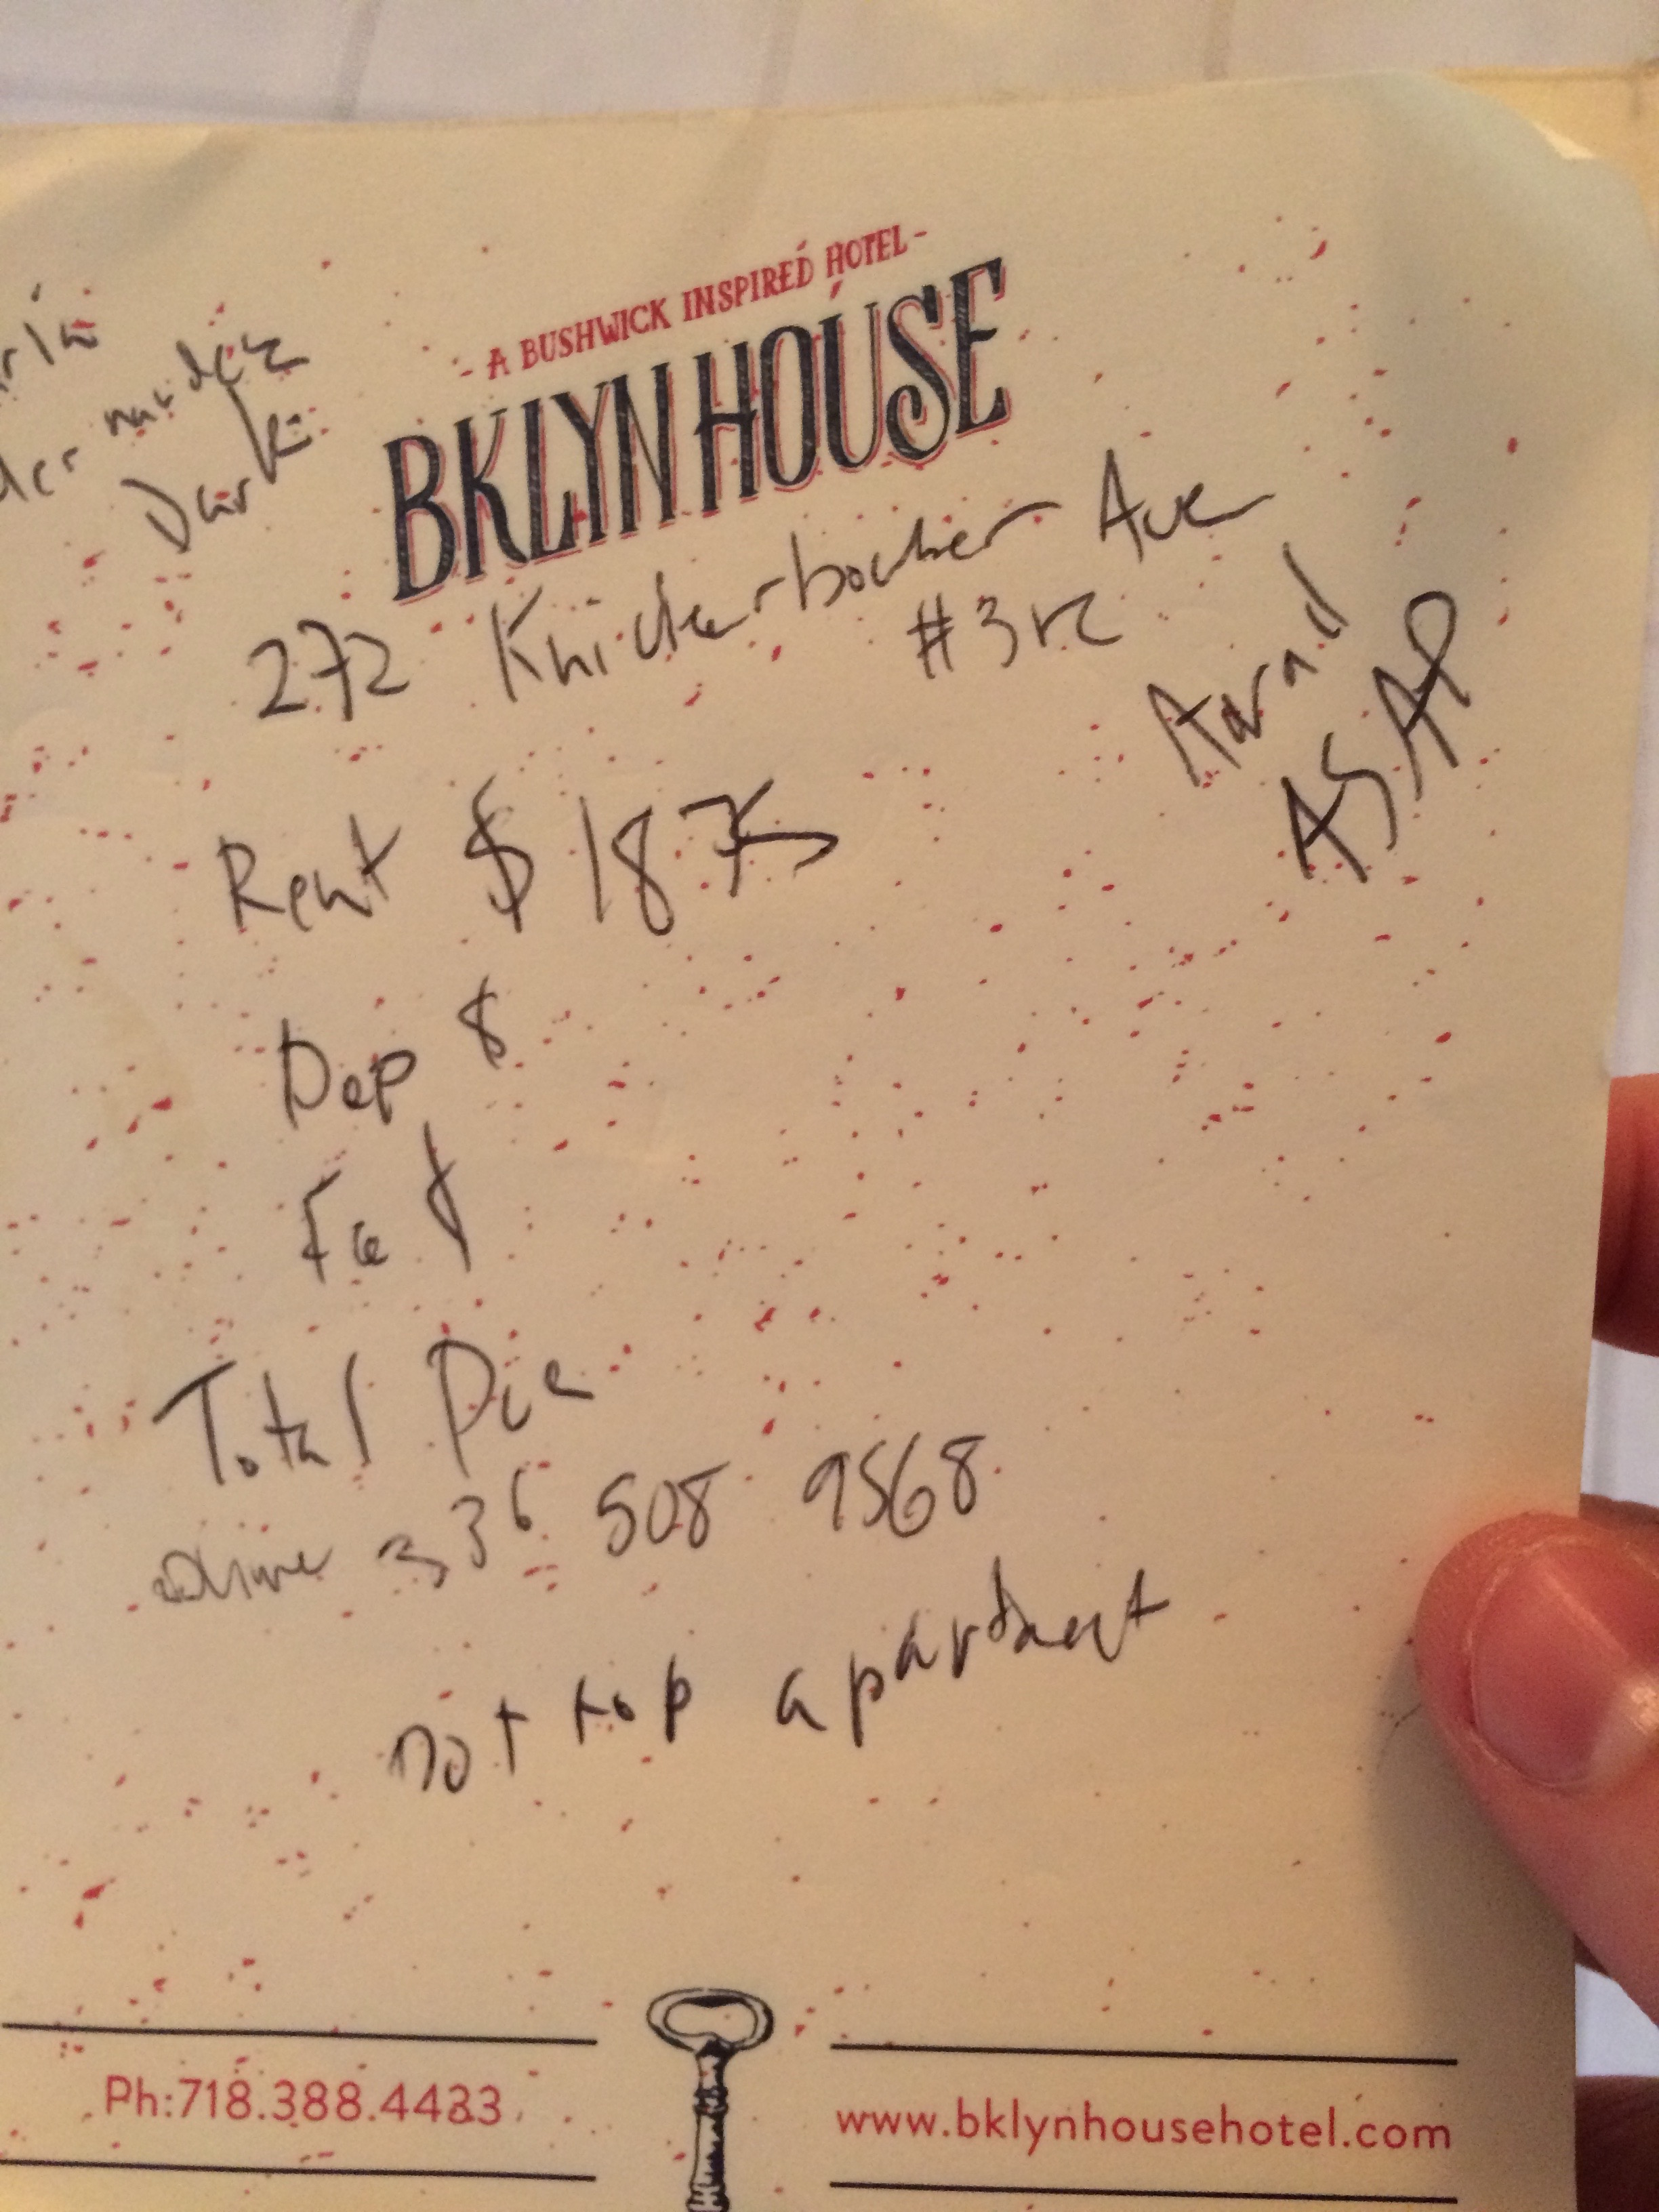 - A BUSHWICK INSPIRED HOTEL -
BKLYN HOUSE
272 Knickerbocker Ave
#3R
ASAP
Rent $ 1875
Dep $
Fee $
Total Due
336 508 9568
not top apartment
Ph:718.388.4433
www.bklynhousehotel.com